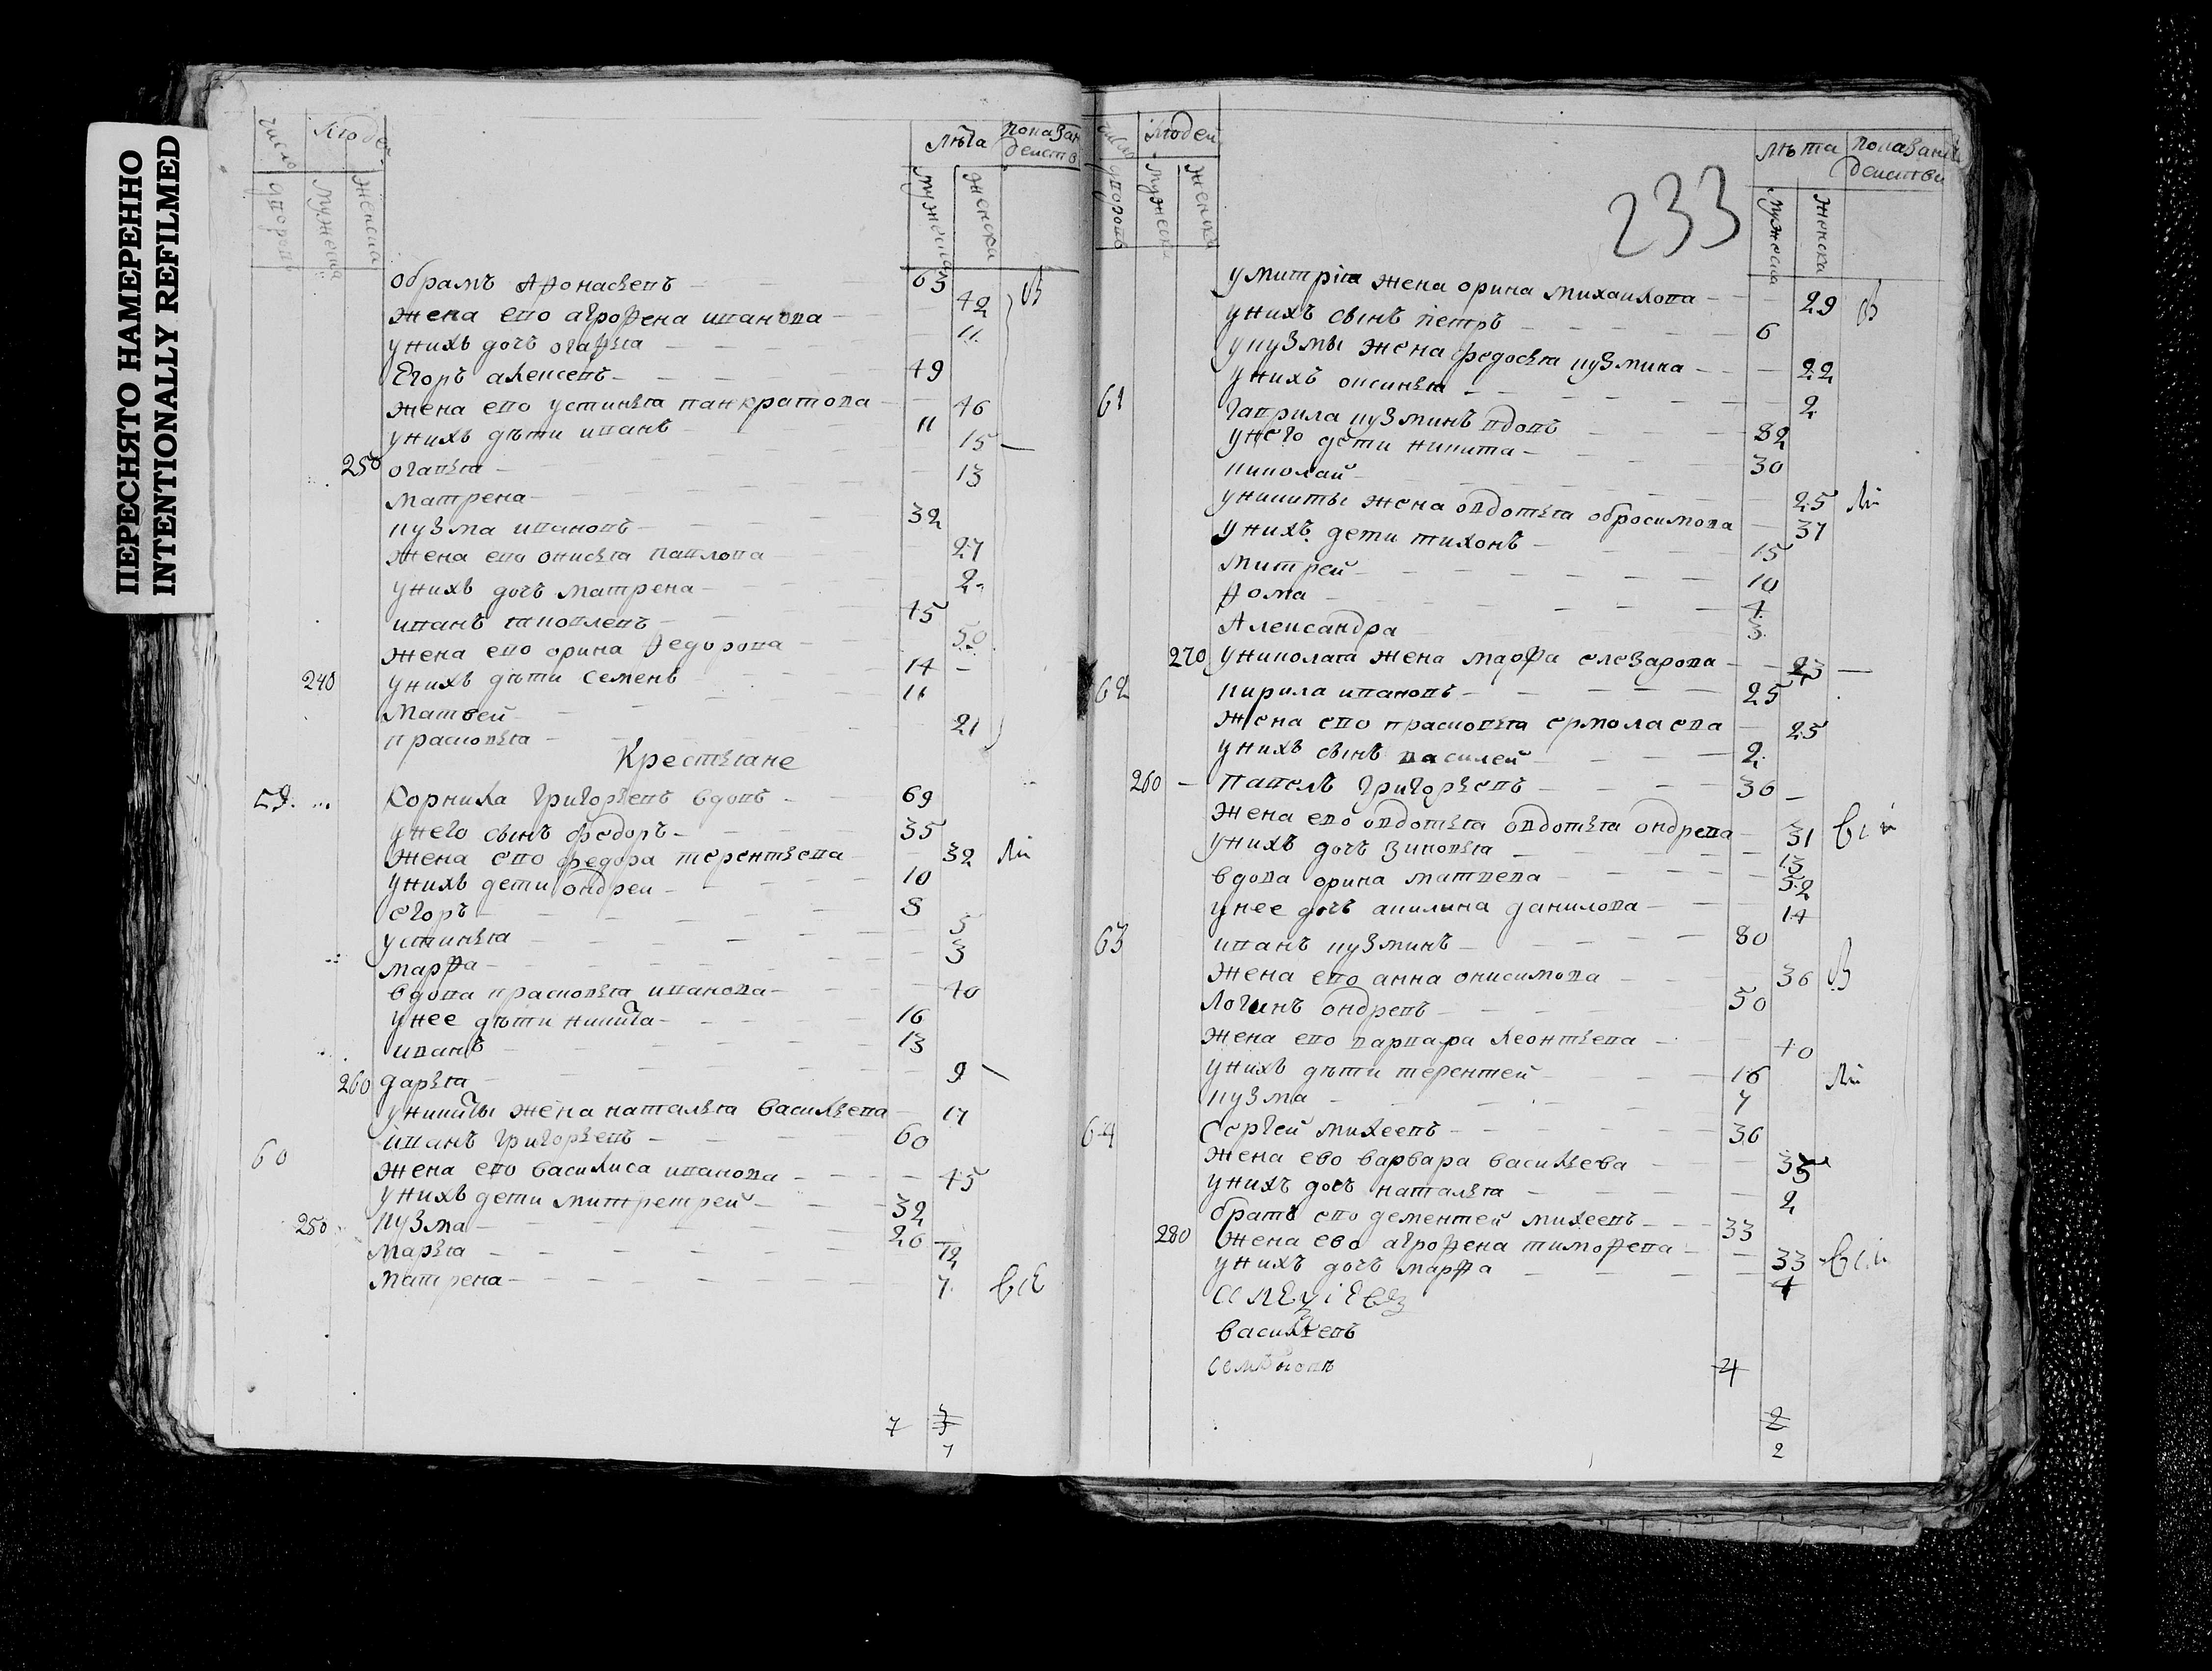 ПЕРЕСНЯТО НАМЕРЕННО
INTENTIONALLY REFILMED
число дворовъ
людей
мужеска
женска
лѣта
мужеска
женска
показан действ
обрамъ Афонасьевъ 63
жена ево агрофена иванова 42
у нихъ дочь огафья 11
Егоръ алексеевъ 49
жена ево устинья панкратова 46
у нихъ дѣти иванъ 11
250 огафья 15
матрена 13
кузма ивановъ 32
жена ево онисья павлова 27
у нихъ дочь матрена 2
иванъ яковлевъ 45
жена ево орина федорова 50
240 у нихъ дѣти семенъ 14
матвей 11
прасковья 21
Крестьяне
59 Корнила григорьевъ вдовъ 69
у него сынъ федоръ 35
жена ево федора терентьева 32
у нихъ дети ондреи 10
егоръ 8
устинья 5
марфа 3
вдова прасковья иванова 40
у нее дѣти никита 16
иванъ 13
260 дарья 9
у никиты жена наталья васильева 17
60 иванъ григорьевъ 60
жена ево василиса иванова 45
у нихъ дети митретрей 32
250 кузма 20
марья 12
матрена 7
7
7
233
число дворовъ
людей
мужеска
женска
лѣта
мужеска
женска
показани действи
у митрия жена орина михаилова 29
у нихъ сынъ петръ 6
у кузмы жена федосья кузмина 22
у нихъ оксинья 2
61 гаврила кузминъ вдовъ 82
у него дети никита 30
николай 25
у никиты жена овдотья обросимова 37
у нихъ дети тихонъ 15
митрей 10
фома 4
Александра 3
270 у николая жена марфа елезарова 23
62 кирила ивановъ 25
жена ево прасковья ермолаева 25
у нихъ сынъ василей 2
260 павелъ григорьевъ 36
жена ево овдотья овдотья ондрева 31
у нихъ дочь зиновья 13
вдова орина матвева 52
у нее дочь акилина данилова 14
63 иванъ кузминъ 80
жена ево анна онисимова 36
Логинъ ондревъ 50
жена ево варвара леонтьева 40
у нихъ дѣти терентей 16
кузма 7
64 Сергей михеевъ 36
жена ево варвара васильева 35
у нихъ дочь наталья 2
братъ ево дементей михеевъ 33
280 жена ево агрофена тимофева 33
у нихъ дочь марфа 4
алеѯіевъ
васильевъ
семѣновъ 4
2
2